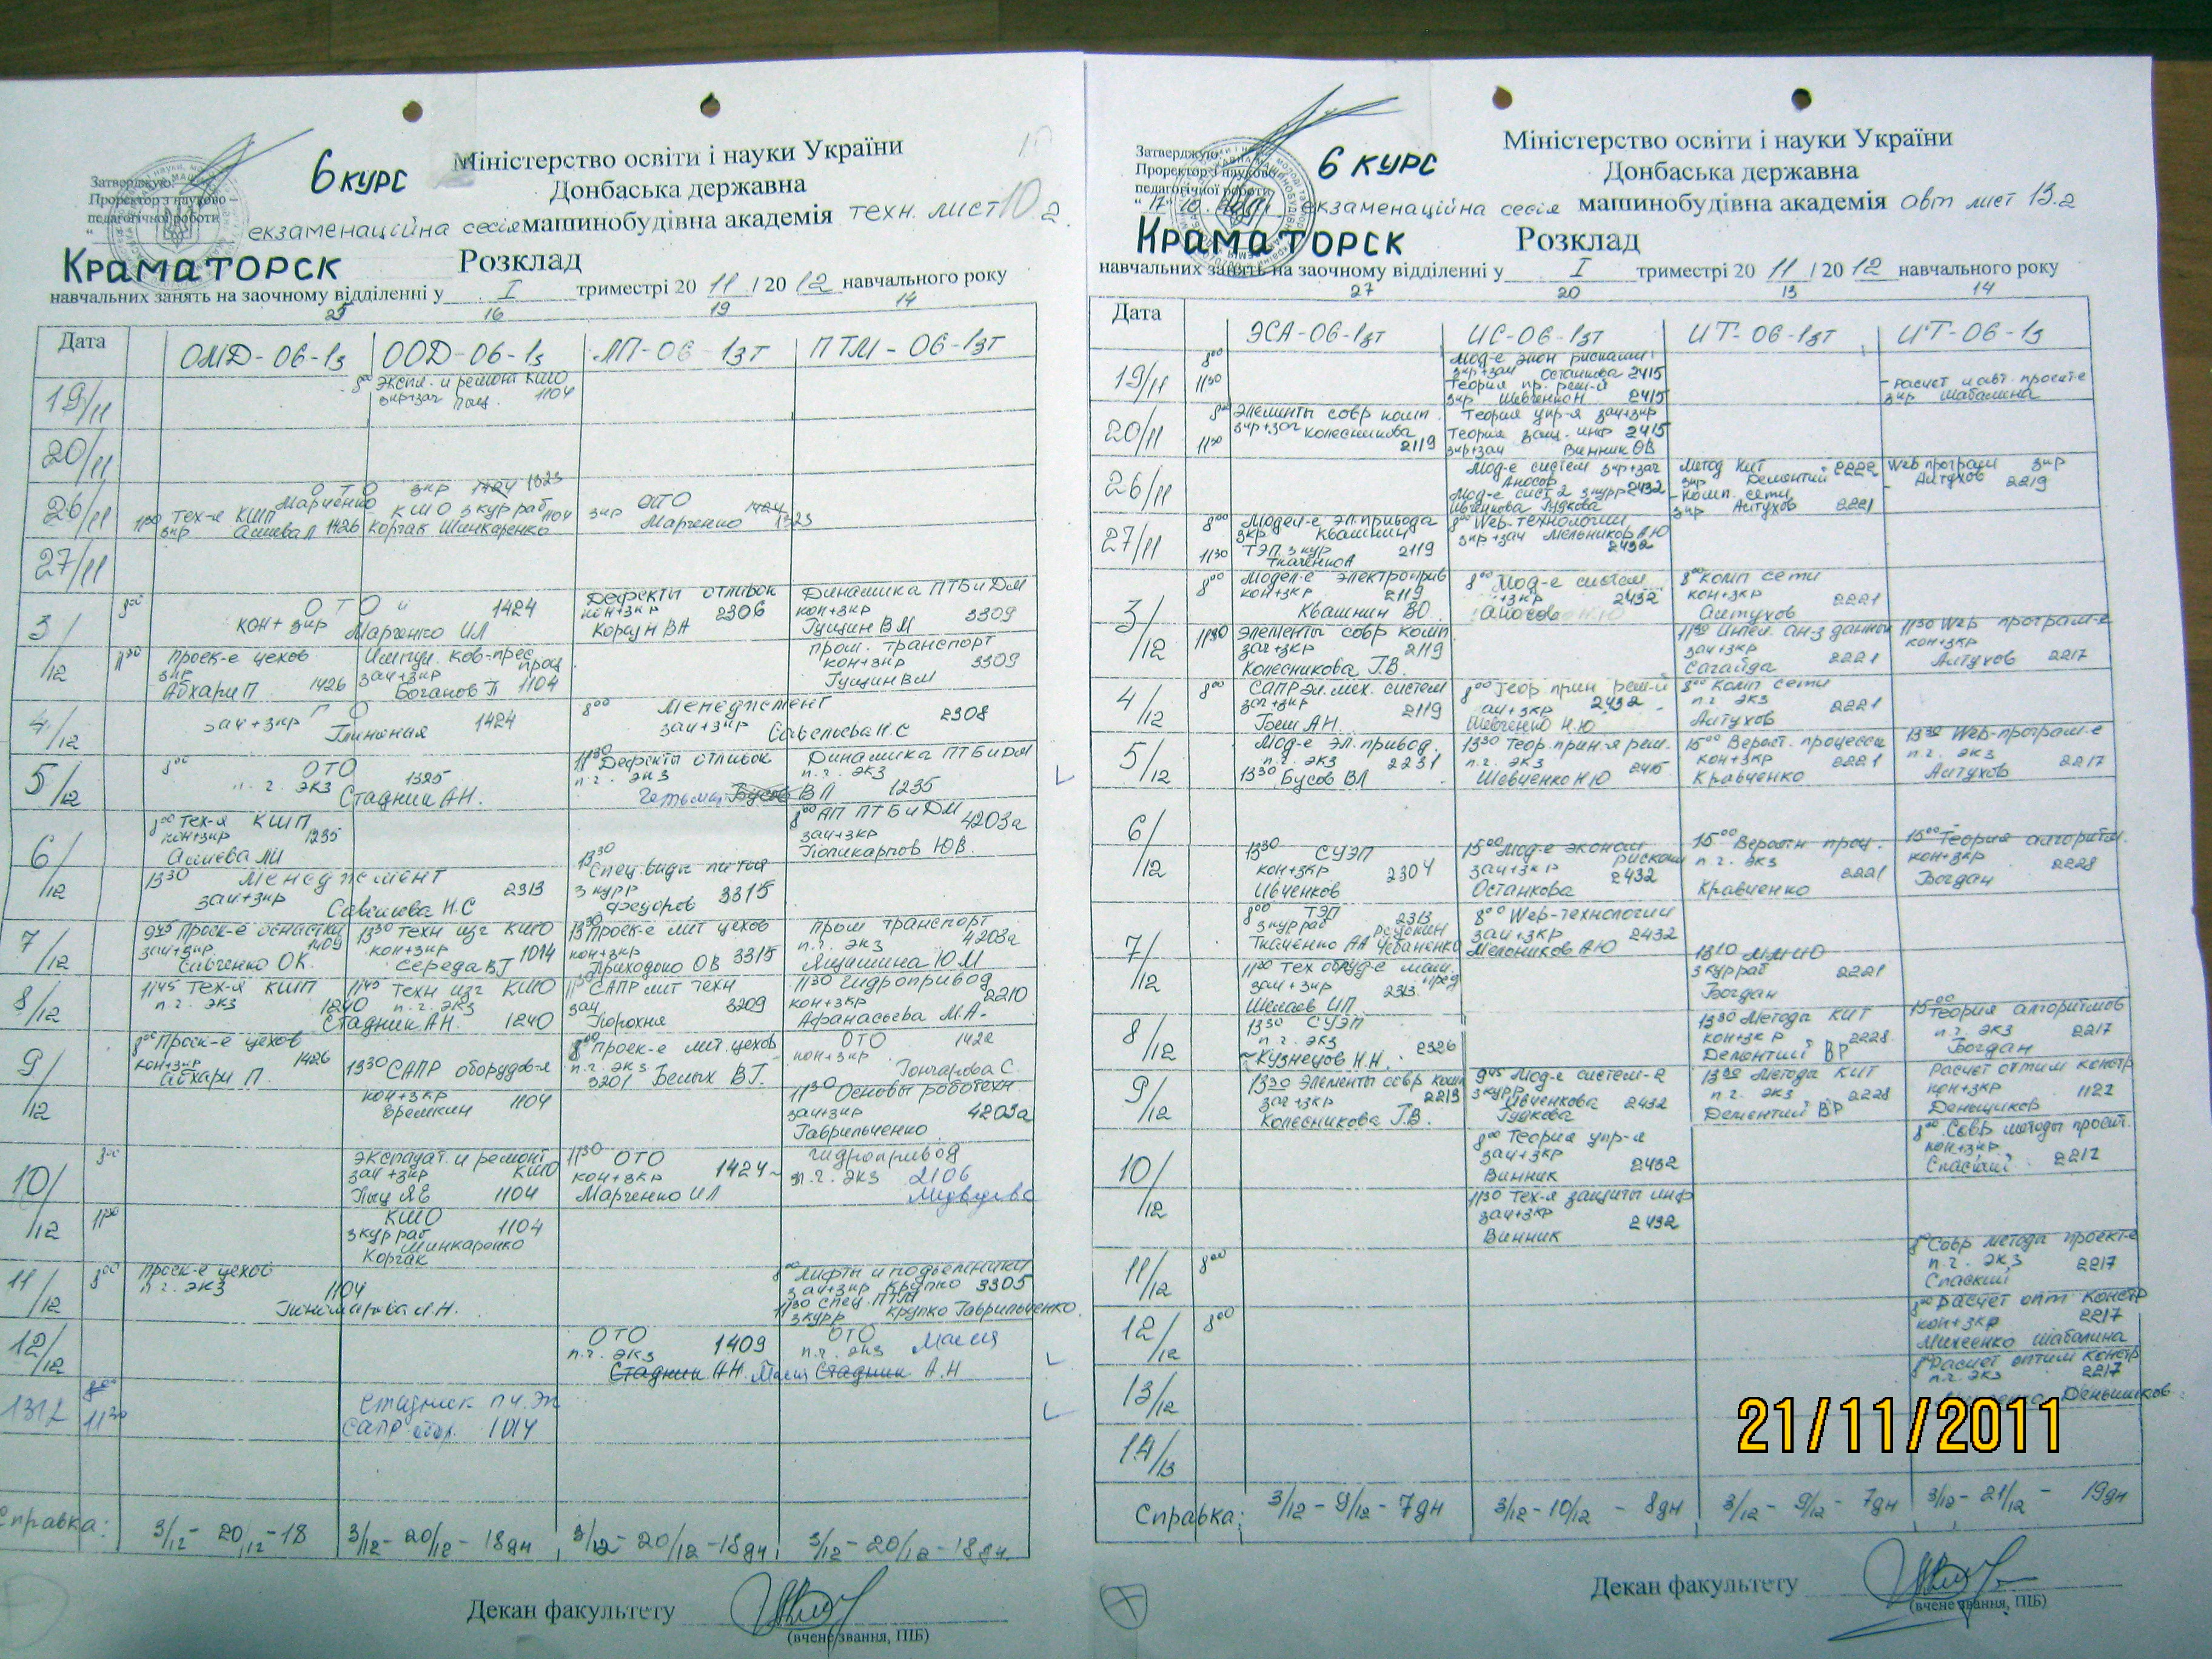 6 курс
Міністерство освіти і науки України
Затверджую
Проректор з науково –
педагогічної роботи
Донбаська державна
екзаменаційна сесія машинобудівна академія техн. лист 10 2.
Краматорск
Розклад
навчальних занять на заочному відділенні у I триместрі 20 11 / 20 12 навчального року
25 16 19 14
Дата
ОМД-06-1з ООД-06-1з ЛП-06-1зт ПТМ-06-1зт
19/11
800 Экспл. и ремонт КШО
зкр+зач 1104
20/11
26/11
ОТО зкр 1424 1323
Марченко КШО з кур раб 1104
1130 Тех-я КШП
зкр 1426 Корчак Шинкаренко
зкр ОТО 1424
Марченко 1323
27/11
3/12
800 ОТО 1424
кон+зкр Марченко ИЛ
Дефекты отливок
кон+зкр 2306
Корсун ВА
Динамика ПТБиДМ
кон+зкр 3309
Гущин ВМ
1130 Проск-е цехов
зкр
Абхари П. 1426
зач+зкр
Боганов 1104
пром. транспорт
кон+зкр 3309
Гущин ВМ
4/12
зач+зкр 1424
800 Менеджмент
зач+зкр 2308
Савельева Н.С
5/12
800 ОТО 1325
п.г. экз
Стадник АН.
1130 Дефекты отливок
п.г. экз
ВЛ 1235
Динамика ПТБиДМ
п.г. экз
6/12
800 Тех-я КШП
кон+зкр 1235
1330 Менеджмент
зач+зкр 2313
Савельева Н.С
1330 Спец. виды литья
з курр
Федоров 3315
800 АП ПТБиДМ 4203а
зач+зкр
Поликарпов ЮВ.
7/12
945 Проск-е оснастки
зач+зкр. 1409
Савченко ОК.
1330 Техн изг КШО
кон+зкр 1014
Середа ВГ
1330 Проск-е лит цехов
кон+зкр
Приходько ОВ 3315
Пром транспорт
п.г. экз 4203а
Ямшинина ЮМ
8/12
1145 Тех-я КШП
п.г. экз 1240
1145 Техн изг КШО
п.г. экз
Стадник АН. 1240
САПР лит техн
зач 3209
Порохня
1130 Гидропривод
кон+зкр 2210
Афанасьева М.А.
9/12
800 Проск-е цехов
кон+зкр 1426
Абхари П.
1330 САПР оборудов-я
кон+зкр
Еремкин 1104
800 Проек-е лит. цехов
п.г. экз
3201 Белых ВГ.
ОТО 1422
кон+зкр
Гончарова С.
1130 Основы роботехн
зач+зкр 4203а
Гаврильченко
10/12
800
Эксплуат. и ремонт
зач+зкр КШО
1104
1130 ОТО
кон+зкр 1424
Марченко ИЛ
Гидропривод
п.г. экз 2106
1130
КШО
з кур раб 1104
Шинкаренко
Корчак
11/12
800 Проск-е цехов
п.г. экз 1104
Пономарева Л.Н.
800 Лифты и подъемники
зач+зкр Крупко 3305
1130 спец. ПТМ
з курр Крупко Гаврильченко
12/12
ОТО 1409
п.г. экз
Стадник АН.
ОТО
п.г. экз
Стадник А.Н
1312 800 1130
Стадник п.ч. эк
САПР 1014
Справка:
3/12 – 20/12 – 18
3/12 – 20/12 – 18дн
3/12 – 20/12 – 18дн
3/12 – 20/12 – 18дн.
Декан факультету
(вчене звання, ПІБ)
6 курс
Міністерство освіти і науки України
Затверджую
Проректор з науково
педагогічної роботи
Донбаська державна
екзаменаційна сесія машинобудівна академія авт лист 13.2
Краматорск
Розклад
навчальних занять на заочному відділенні у I триместрі 20 11 / 20 12 навчального року
27 20 13 14
Дата
ЭСА-06-1зт ИС-06-1зт ИТ-06-1зт ИТ-06-1з
19/11
800
1130
Мод-е экон рисками
зкр+зач Останкова 2415
Теория пр. реш-й
зкр Шевченко Н. 2415
Расчет и авт. проект-е
зкр Шабалина
20/11
800 Элементы совр комп.
зкр+зач Колесникова
1130 2119
Теория упр-я зач+зкр
Теория защ. инф 2415
зкр+зач Винник ОВ
26/11
Мод-е систем зкр+зач
Аносов
Мод-е сист 2 з курр 2432
Ивченкова Гудкова
Метод КИТ 2222
зкр Дементий
Комп. сети
зкр Алтухов 2221
Web програм зкр
Алтухов 2219
27/11
800 Модел-е эл. привода
зкр Квашнин
1130 ТЭП з кур 2119
Ткаченко А
800 Web-технологии
зкр+зач Мельников АЮ
2432
3/12
800 Модел-е электроприв
кон+зкр 2119
Квашнин ВО.
800 Мод-е систем
+зкр 2432
Аносов
800 Комп сети
кон+зкр 2221
Алтухов
1130 Элементы совр комп.
зач+зкр 2119
Колесникова Г.В.
1130 Интел. ан-з данных
зач+зкр
Сагайда 2221
1130 Web програм-е
кон+зкр
Алтухов 2217
4/12
800 САПР эл. мех. систем
зач+зкр
Беш АН. 2119
800 Теор. прин реш-й
зач+зкр 2432
Шевченко Н.Ю
800 Комп сети
п.г. экз 2221
Алтухов
5/12
Мод-е эл. привод.
п.г. экз 2231
1330 Бусов ВЛ
1330 Теор. прин-я реш.
п.г. экз
Шевченко НЮ 2415
1500 Вероят. процессы
кон+зкр 2221
Кравченко
1330 Web-програм-е
п.г. экз
Алтухов 2217
6/12
1330 СУЭП
кон+зкр 2304
Ивченков
1500 Мод-е эконом
рисками
зач+зкр 2432
Останкова
1500 Вероятн проц.
п.г. экз 2221
Кравченко
1500 Теория алгоритм.
кон+зкр 2228
Богдан
7/12
800 ТЭП 2313
з кур раб
Ткаченко АА Чебаненко
800 Web-технологии
зач+зкр 2432
Мельников АЮ
1130 Тех оборуд-е маш.
зач+зкр 2313 пред
Шеласв ИП
1310 ММИО
з кур раб 2221
Богдан
8/12
1330 СУЭП
п.г. экз
Кузнецов Н.Н. 2326
1330 Метода КИТ
кон+зкр 2228
Дементий ВР
1500 Теория алгоритмов
п.г. экз 2217
Богдан
9/12
1330 Элементы совр комп
зач+зкр 2213
Колесникова Г.В.
945 Мод-е систем-2
з курр
Ивченкова 2432
Гудкова
1330 Метода КИТ
п.г. экз 2228
Дементий ВР
Расчет оптим констр
кон+зкр 1122
Деньщиков
10/12
800 Теория упр-я
зач+зкр
Винник 2432
800 Совр методы проект.
кон+зкр
Спаский 2212
1130 Тех-я защиты инф
зач+зкр
Винник 2432
11/12
800
800 Совр метода проект-е
п.г. экз
Спаский 2217
12/12
800
800 Расчет опт констр
кон+зкр 2217
Михеенко Шабалина
13/12
800 Расчет оптим констр
п.г. экз 2217
Деньщиков
14/13
21/11/2011
Справка:
3/12 – 9/12 – 7дн
3/12 – 10/12 – 8дн
3/12 – 9/12 – 7дн
3/12 – 21/12 – 19дн
Декан факультету
(вчене звання, ПІБ)